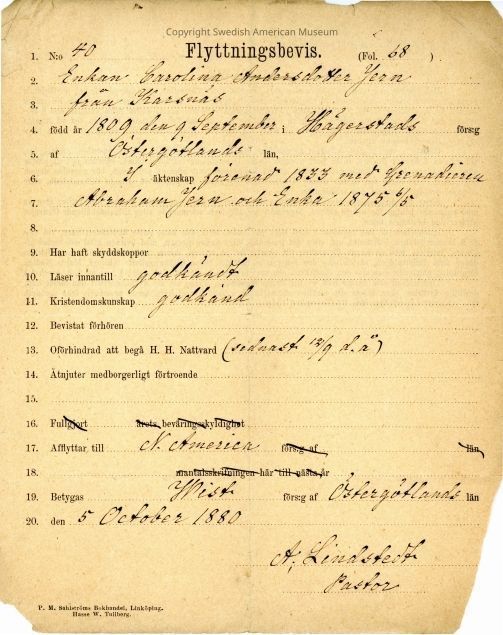 Copyright Swedish American Museum
Flyttningsbevis.
1. N:o 40 (Fol. 68 )
2. Enkan Carolina Andersdotter Jern
3. från Karsnäs
4. född år 1809 den 9 September i Hägerstads förs:g
5. af Östergötlands län,
6. I äktenskap förenad 1833 med Grenadieren
7. Abraham Jern och Enka 1875 6/5
8.
9. Har haft skyddskoppor
10. Läser innantill godkändt
11. Kristendomskunskap godkänd
12. Bevistat förhören
13. Oförhindrad att begå H. H. Nattvard (sednast 12/9 d.å)
14. Åtnjuter medborgerligt förtroende
15.
16. Fullgjort årets beväringsskyldighet
17. Afflyttar till N. America förs:g af län,
18. mantalsskrifningen här till nästa år
19. Betygas Wist förs:g af Östergötlands län
20. den 5 October 1880
A. Lindstedt
Pastor
P. M. Sahlströms Bokhandel, Linköping.
Hasse W. Tullberg.